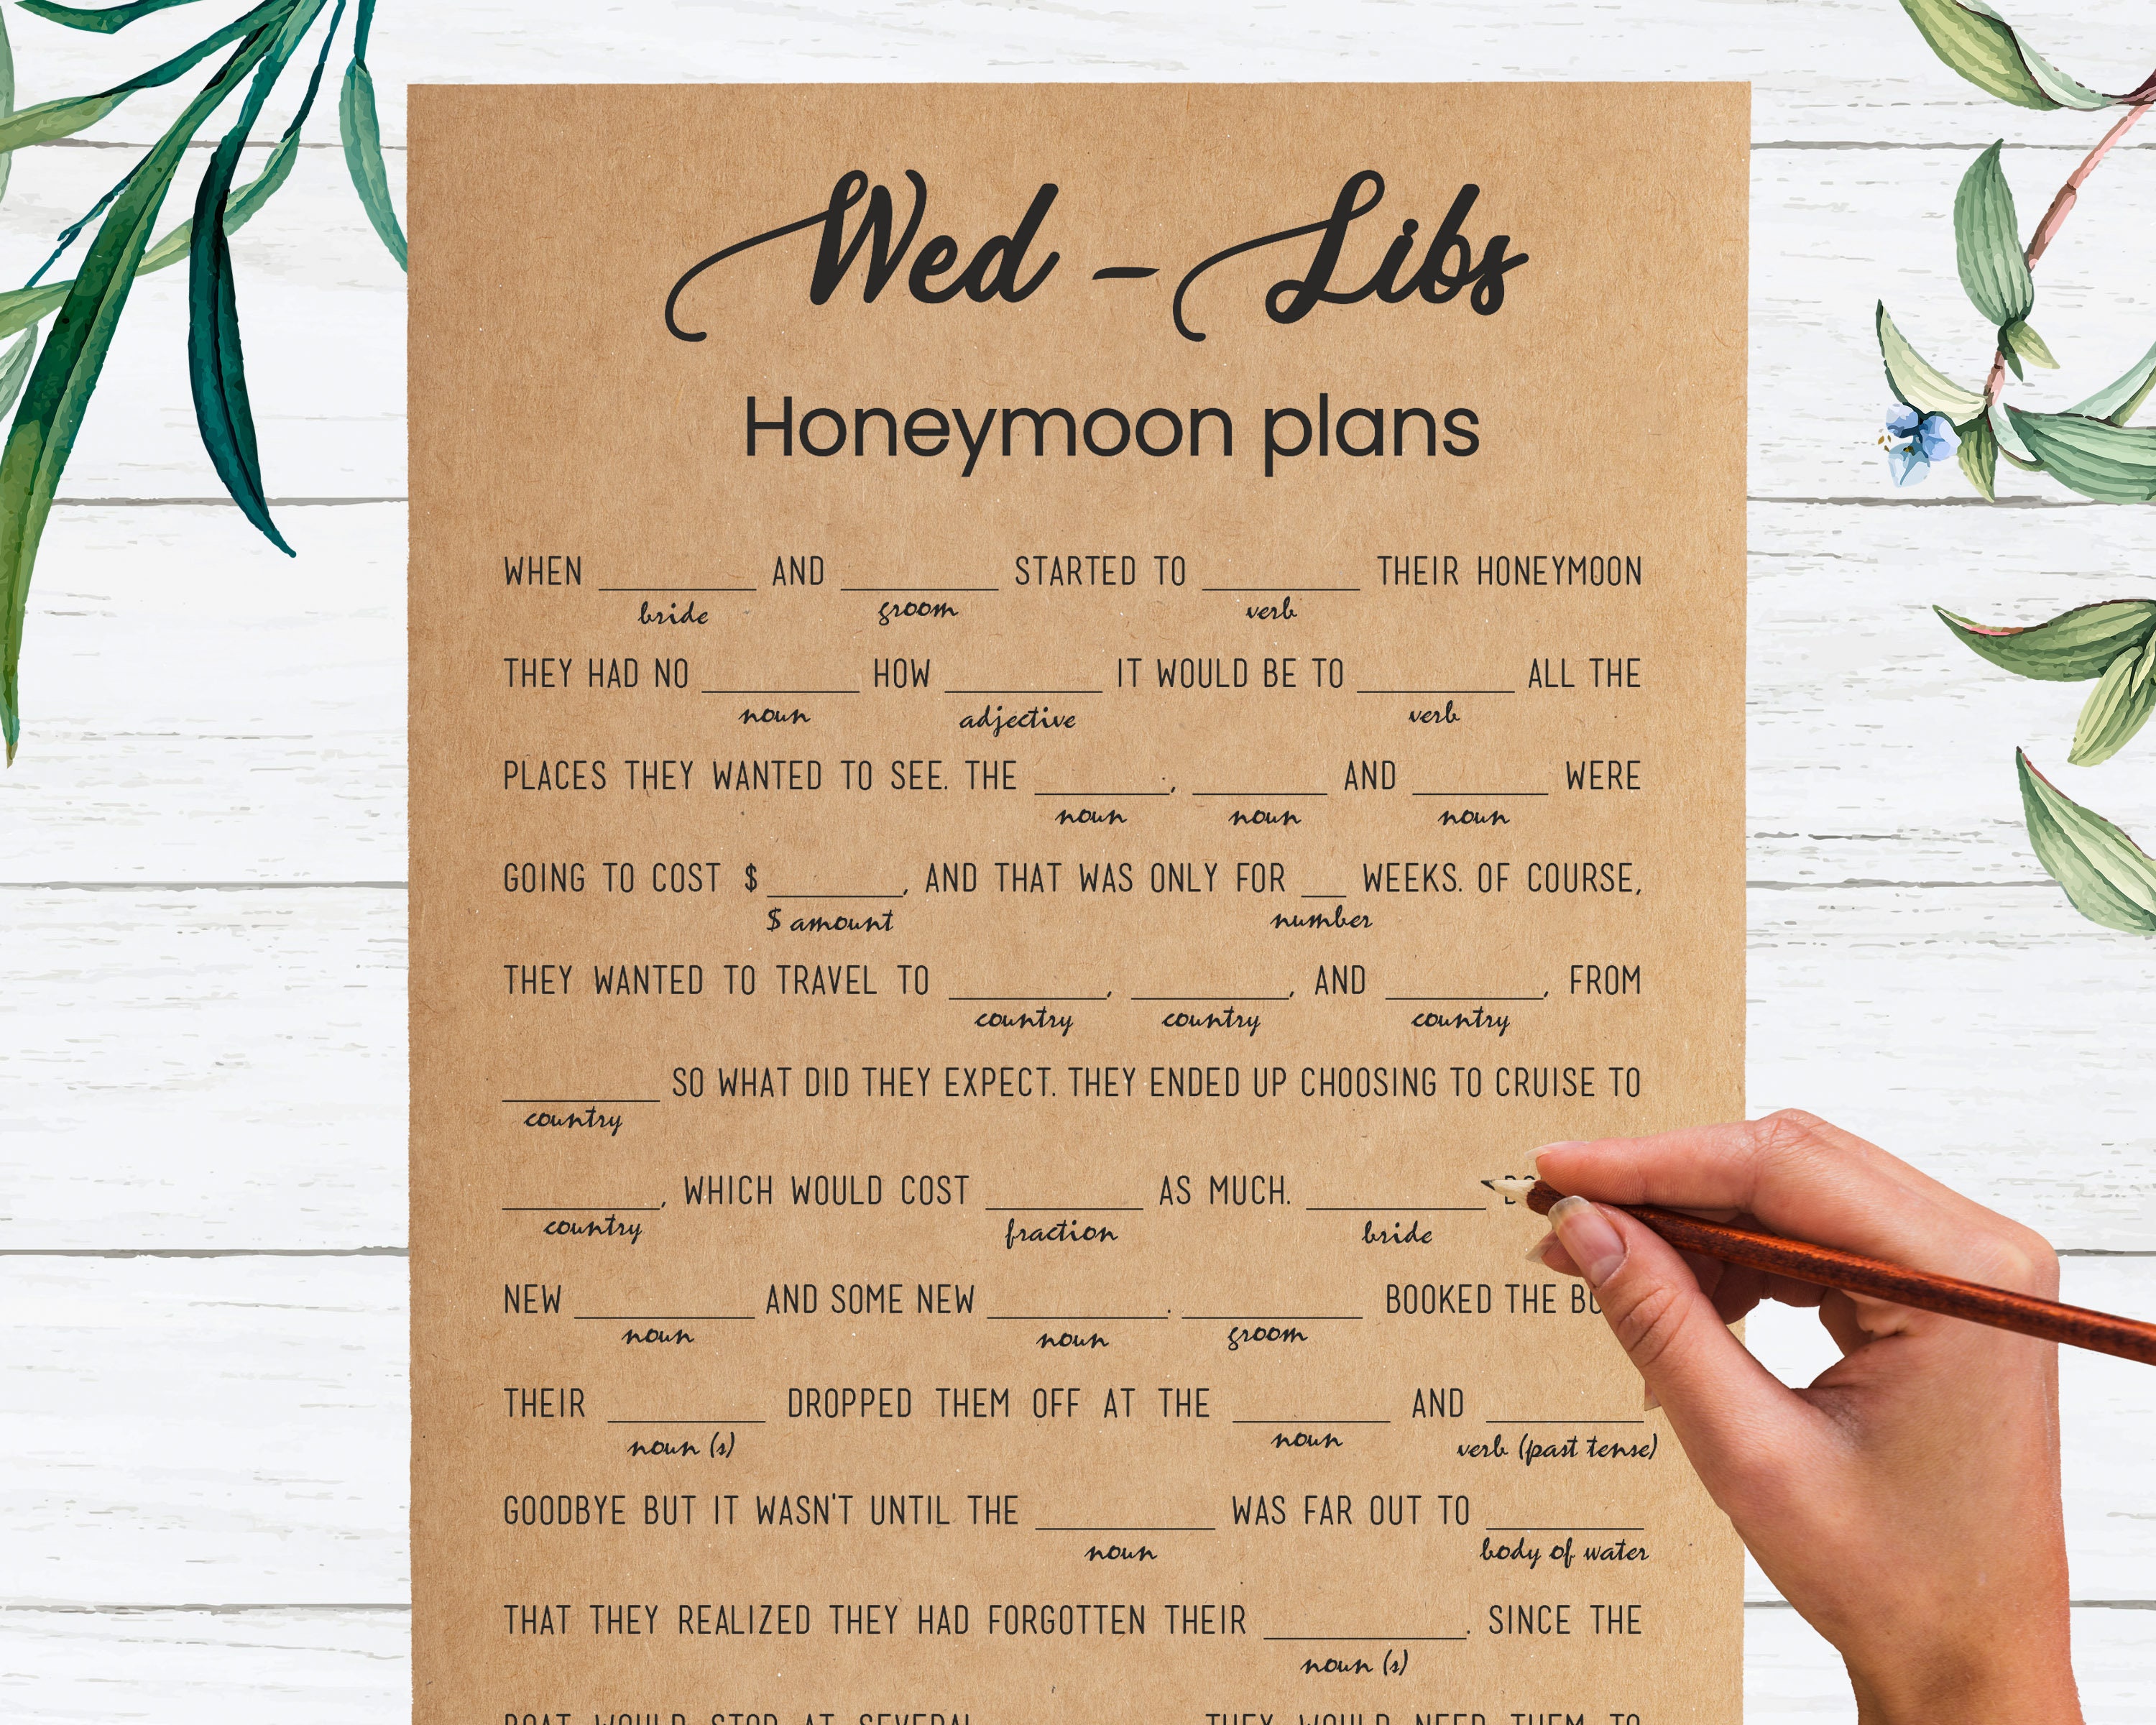 Wed - Libs
Honeymoon plans
WHEN __________ AND __________ STARTED TO __________ THEIR HONEYMOON
bride groom verb
THEY HAD NO __________ HOW __________ IT WOULD BE TO __________ ALL THE
noun adjective verb
PLACES THEY WANTED TO SEE. THE _________, _________ AND _________ WERE
noun noun noun
GOING TO COST $_________, AND THAT WAS ONLY FOR ___ WEEKS. OF COURSE,
$ amount number
THEY WANTED TO TRAVEL TO __________, __________, AND __________, FROM
country country country
__________ SO WHAT DID THEY EXPECT. THEY ENDED UP CHOOSING TO CRUISE TO
country
__________, WHICH WOULD COST __________ AS MUCH. ___________
country fraction bride
NEW ___________ AND SOME NEW ___________. ___________ BOOKED THE
noun noun groom
THEIR __________ DROPPED THEM OFF AT THE __________ AND __________
noun (s) noun verb (past tense)
GOODBYE BUT IT WASN'T UNTIL THE ___________ WAS FAR OUT TO __________
noun body of water
THAT THEY REALIZED THEY HAD FORGOTTEN THEIR ____________. SINCE THE
noun (s)
BOAT WOULD STOP AT SEVERAL THEY WOULD NEED THEM TO